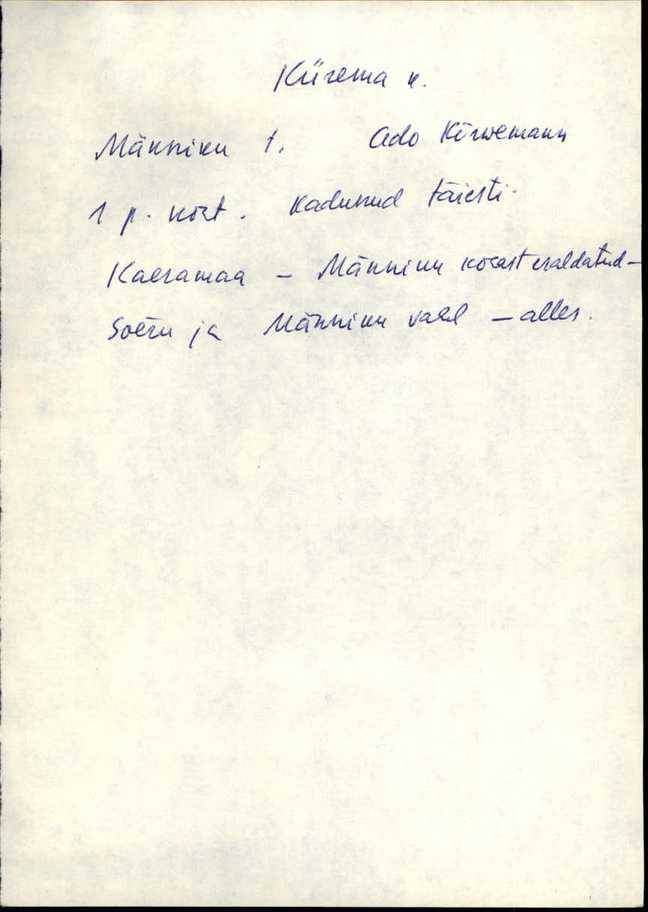 Kiirema k.
Männiku t. Ado Kõrvemann
1 p. kort. kadunud täiesti.
Kaeramaa – Männiku kõrast eraldatud –
Soeru ja Männiku vahel – alles.